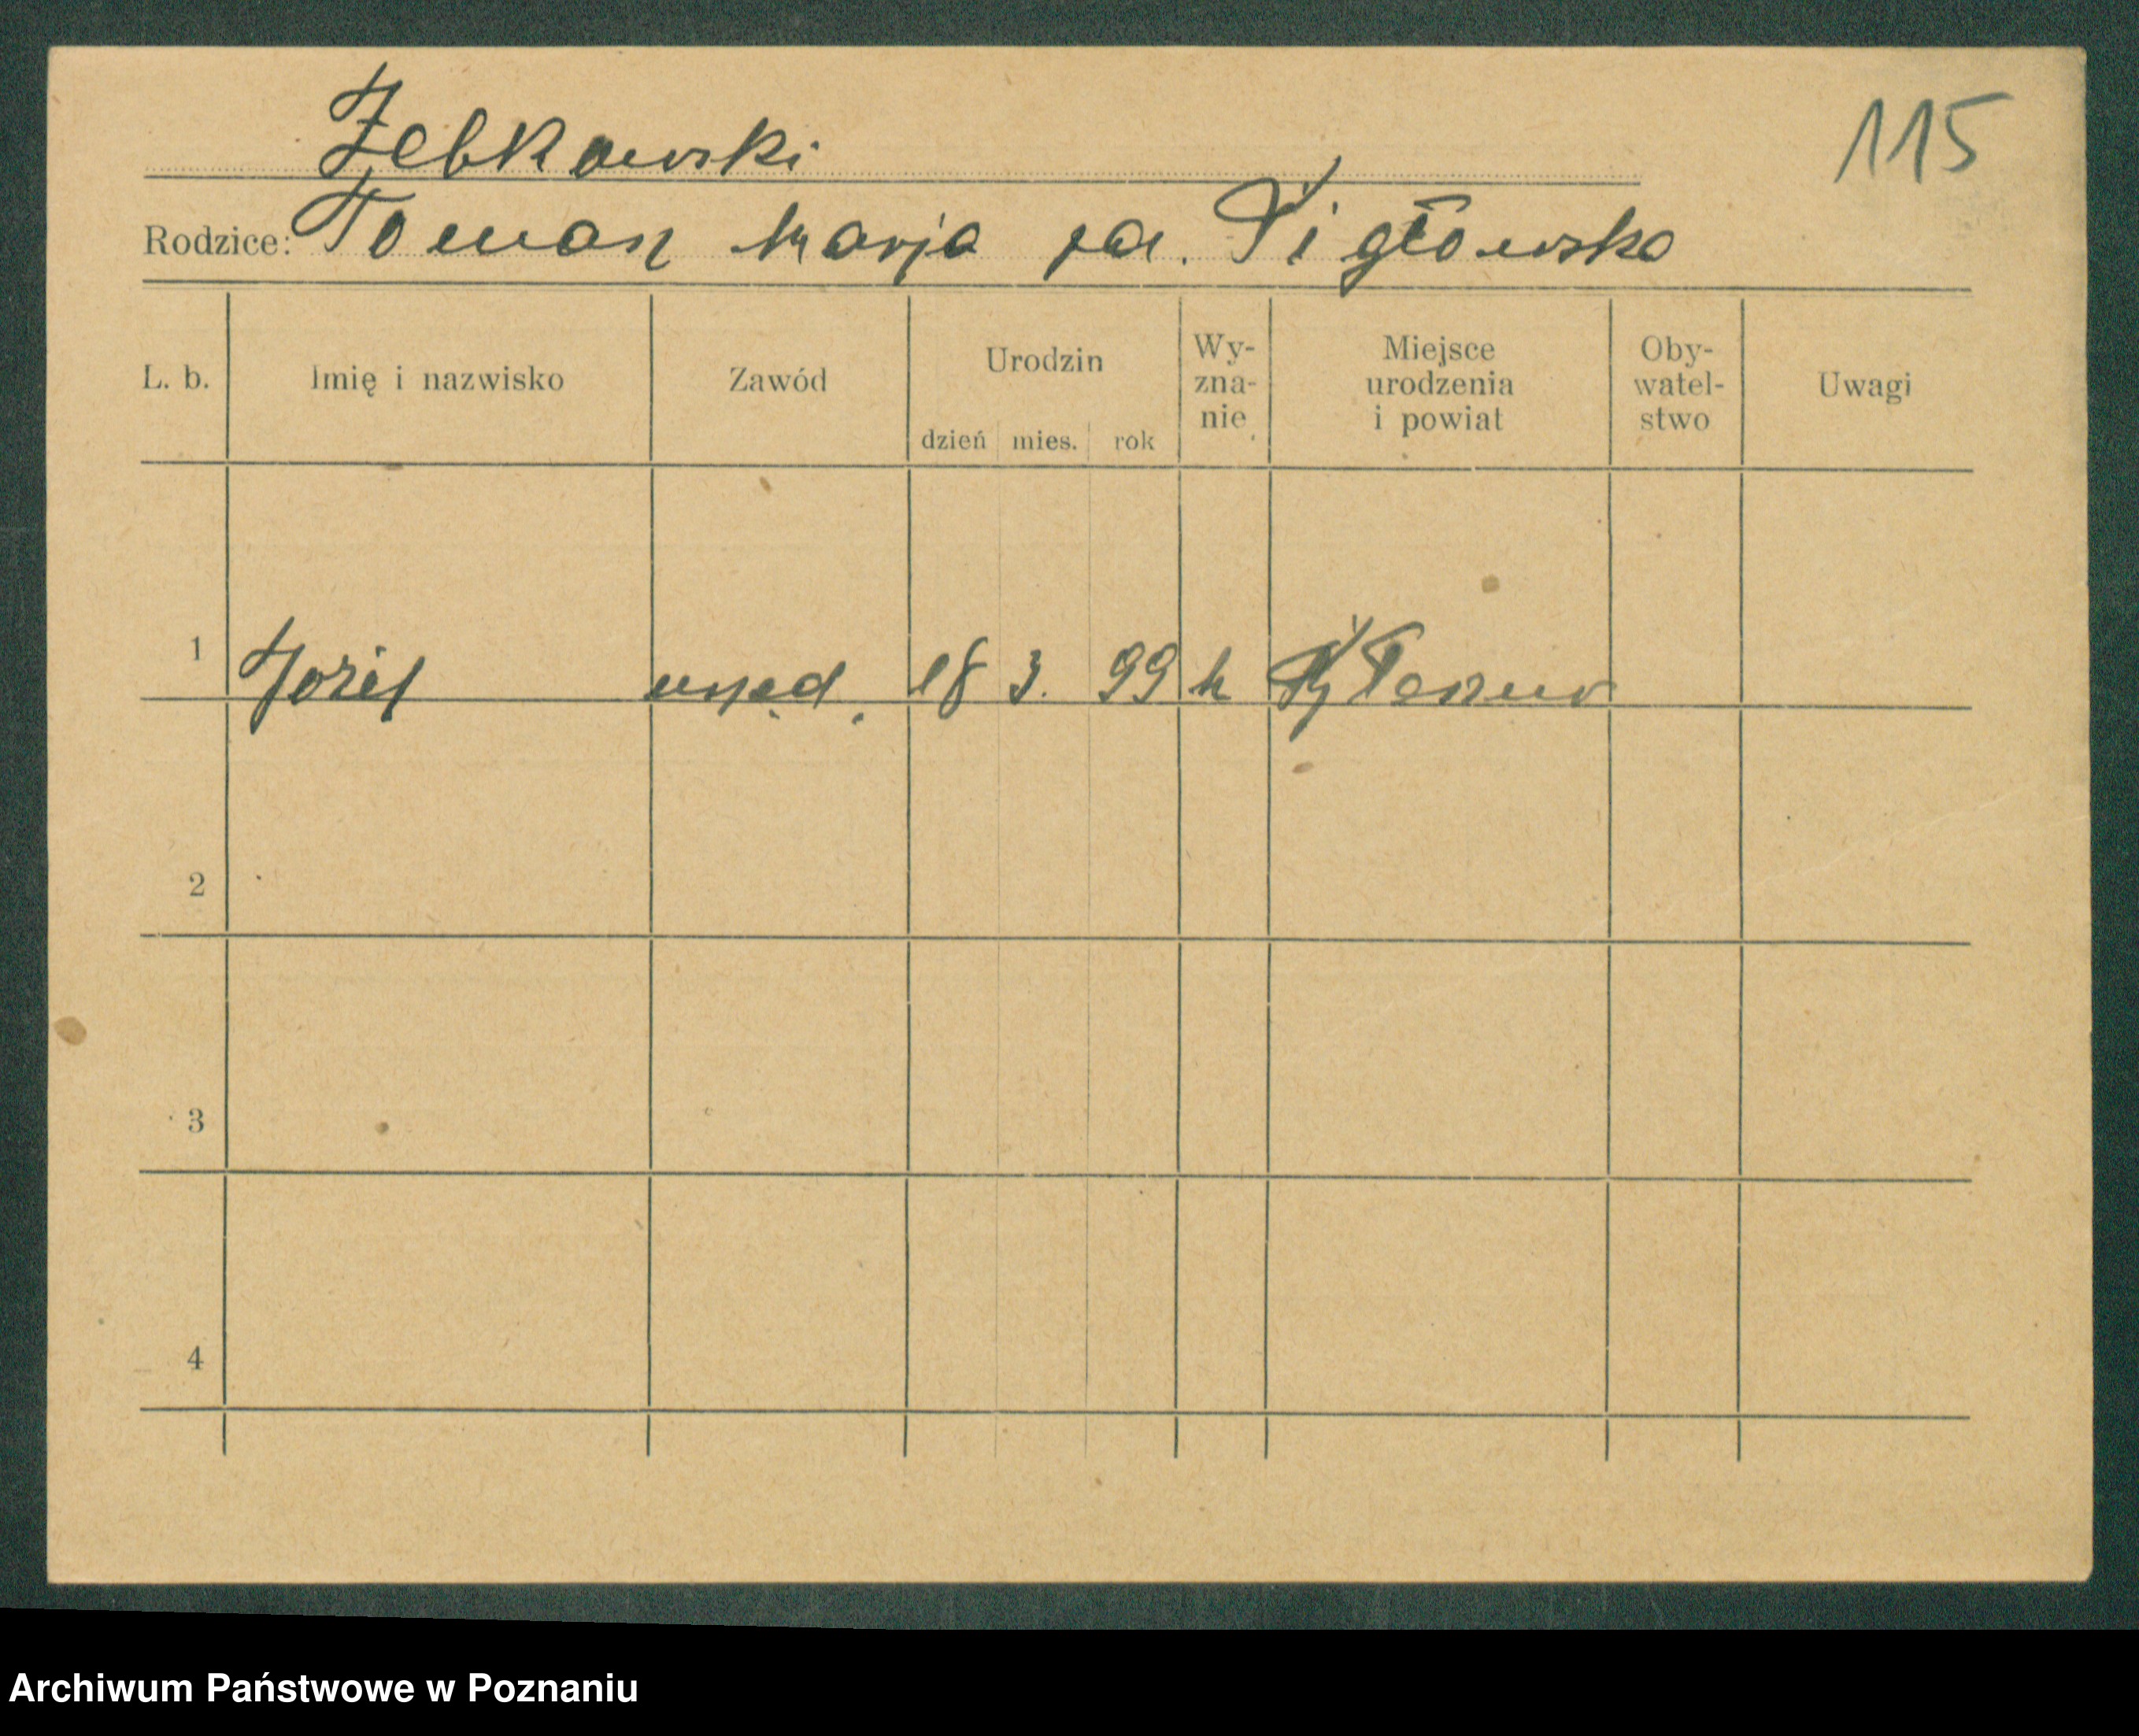 Żebkowski
115
Rodzice: Toman Marja za.
L. b. Imię i nazwisko Zawód Urodzin dzień mies. rok Wy-zna-nie Miejsce urodzenia i powiat Oby-watel-stwo Uwagi
1 Józef urzęd. 18 3. 99 k
2
3
4
Archiwum Państwowe w Poznaniu